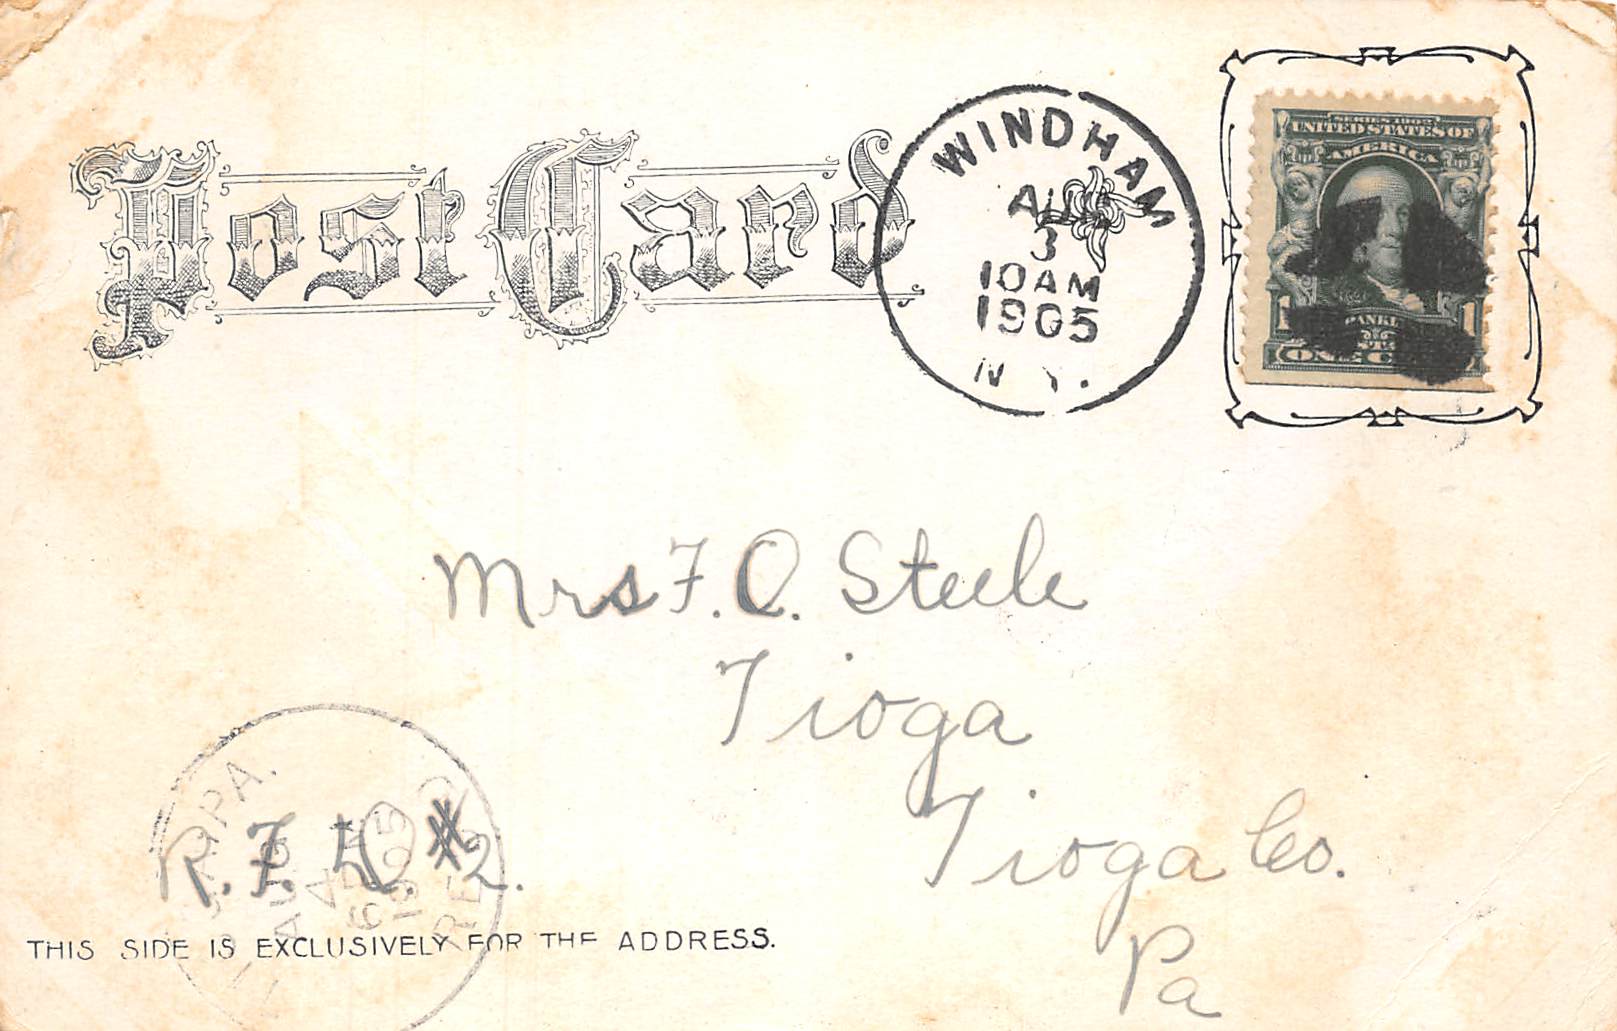 Post Card
WINDHAM
AUG
3
10 AM
1905
N.Y.
SERIES 1902
UNITED STATES OF
AMERICA
1 FRANKLIN 1
ONE CENT
Mrs F. O. Steele
Tioga
Tioga Co.
Pa
R. F. D. #2.
PA.
AUG
4
6
1905
REC'D
THIS SIDE IS EXCLUSIVELY FOR THE ADDRESS.